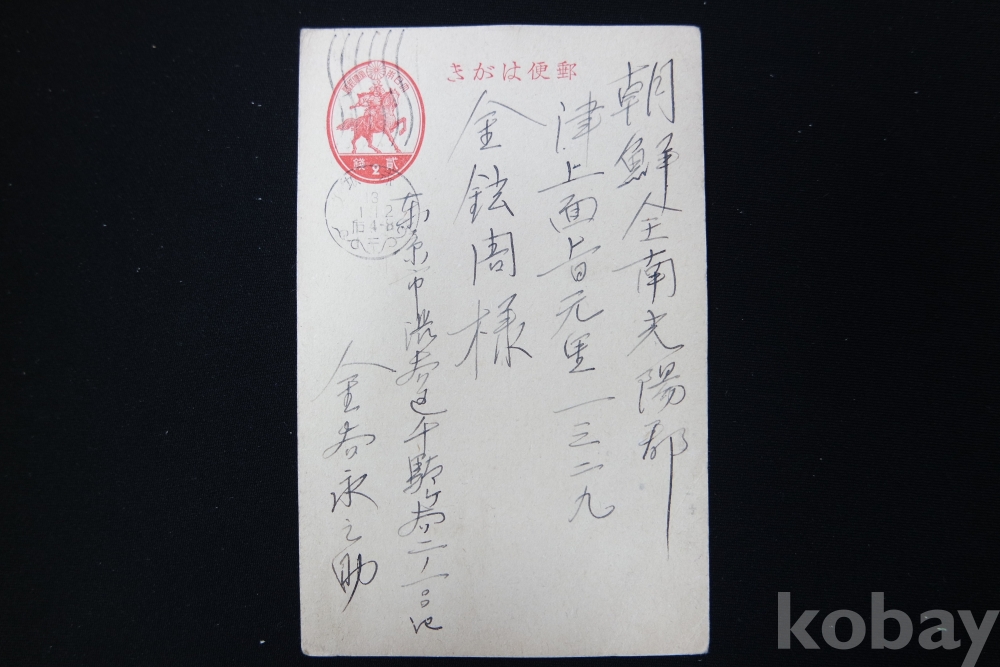 郵便はがき
貳 2 錢
朝鮮全南光陽郡
津上面旨元里一三二九
金鉉周様
東京市渋谷区千駄ヶ谷二ノ一〇〇地
金谷永之助
kobay